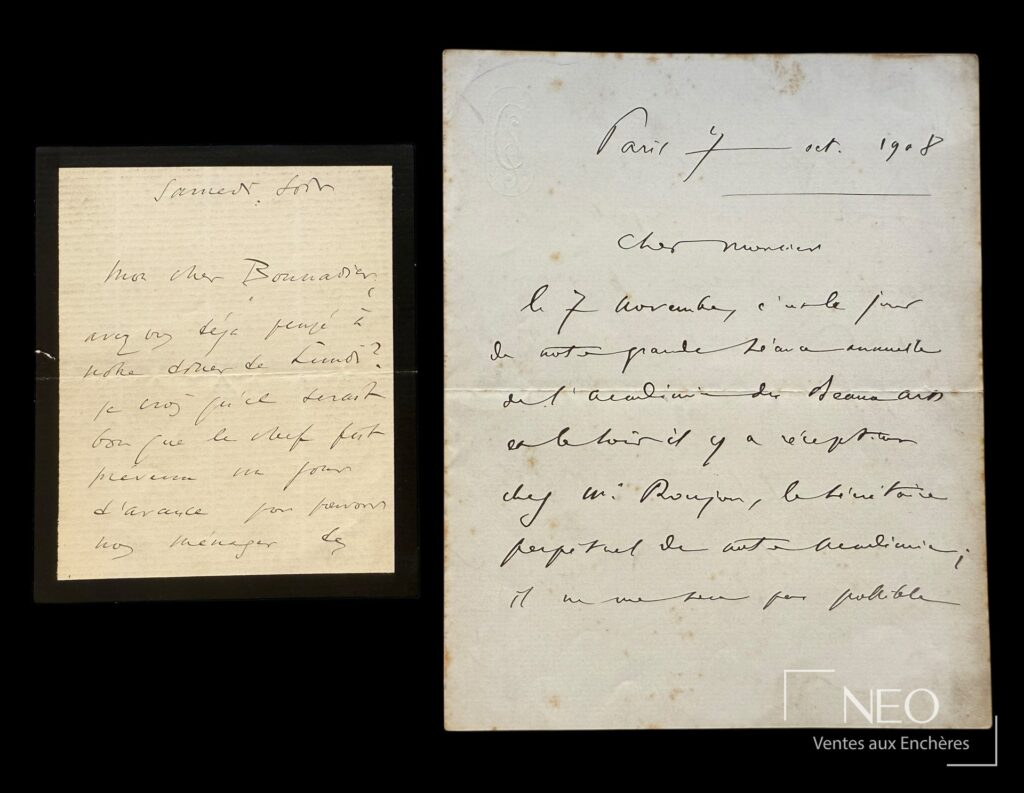 Samedi soir
Mon cher Bonnadier,
avez vous déjà pensé à
notre dîner de Lundi?
je crois qu'il serait
bon que le chef fut
prévenu un jour
d'avance pour pouvoir
nous ménager des
Paris 7 oct. 1908
Cher Monsieur
le 7 novembre, c'est le jour
de notre grande séance annuelle
de l'Académie des Beaux arts
et le soir il y a réception
chez Mr Roujon, le secrétaire
perpétuel de notre Académie;
il ne me sera pas possible
NEO
Ventes aux Enchères